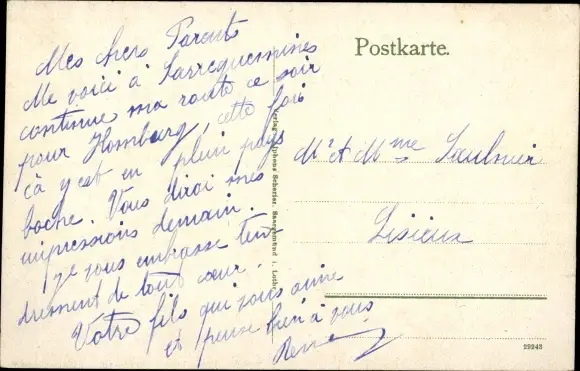 Mes chers Parents
Me voici à Sarreguemines
continue ma route ce soir
pour Hombourg, cette fois
çà y est en plein pays
boche. Vous dirai mes
impressions demain.
Je vous embrasse ten
drement de tout cœur.
Votre fils qui vous aime
et pense bien à vous
René
Postkarte.
Mr et Mme Saulnier
Lisieux
Verlag Alphons Scherier, Saargemünd i. Lothr.
29243